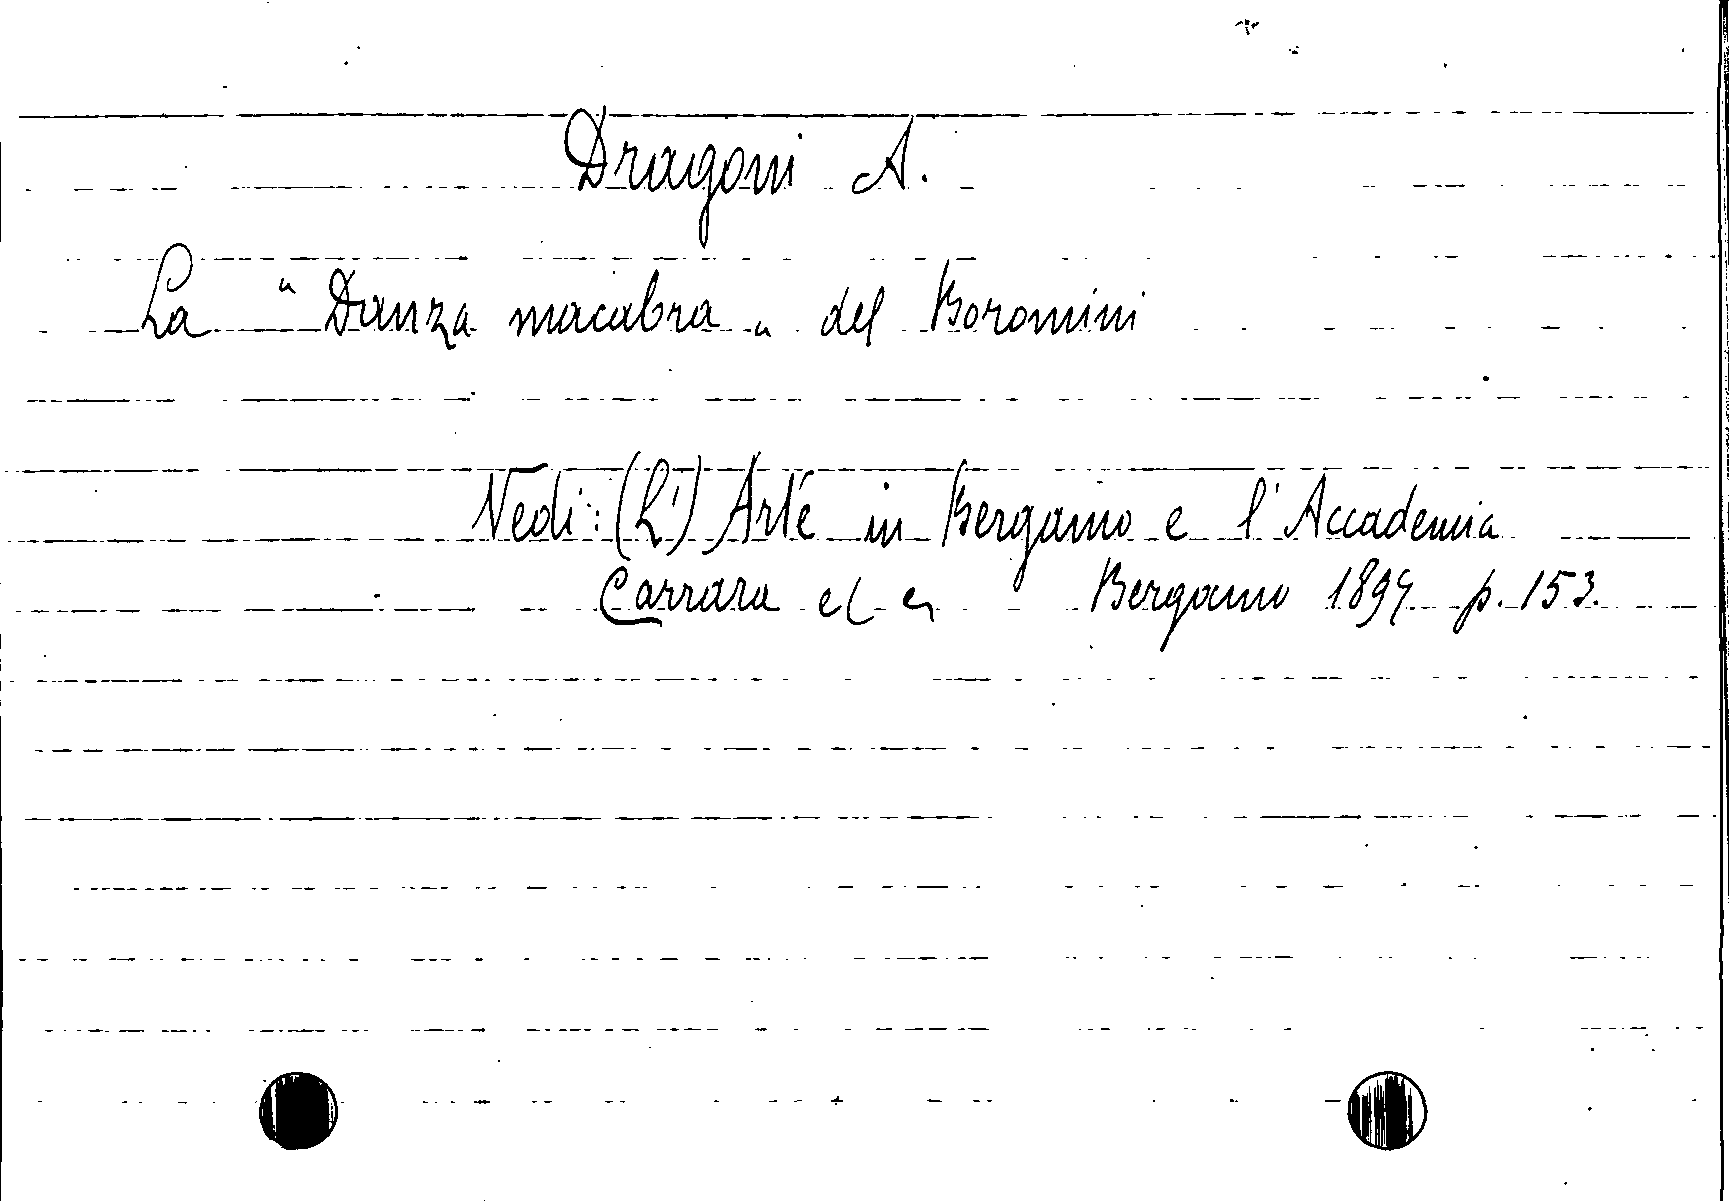 Dragoni A.
La "Danza macabra" del Boromini
Vedi: (L') Arte in Bergamo e l'Accademia
Carrara Bergamo 1897 p. 153.